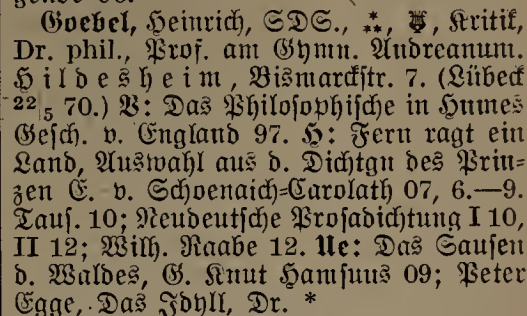 Goebel, Heinrich, SDS., Kritik,
Dr. phil., Prof. am Gymn. Andreanum.
Hildesheim, Bismarckstr. 7. (Lübeck
22|5 70.) V: Das Philosophische in Humes
Gesch. v. England 97. H: Fern ragt ein
Land, Auswahl aus d. Dichtgn des Prin=
zen E. v. Schoenaich=Carolath 07, 6.—9.
Taus. 10; Neudeutsche Prosadichtung I 10,
II 12; Wilh. Raabe 12. Ue: Das Sausen
d. Waldes, G. Knut Hamsuns 09; Peter
Egge, Das Idyll, Dr. *